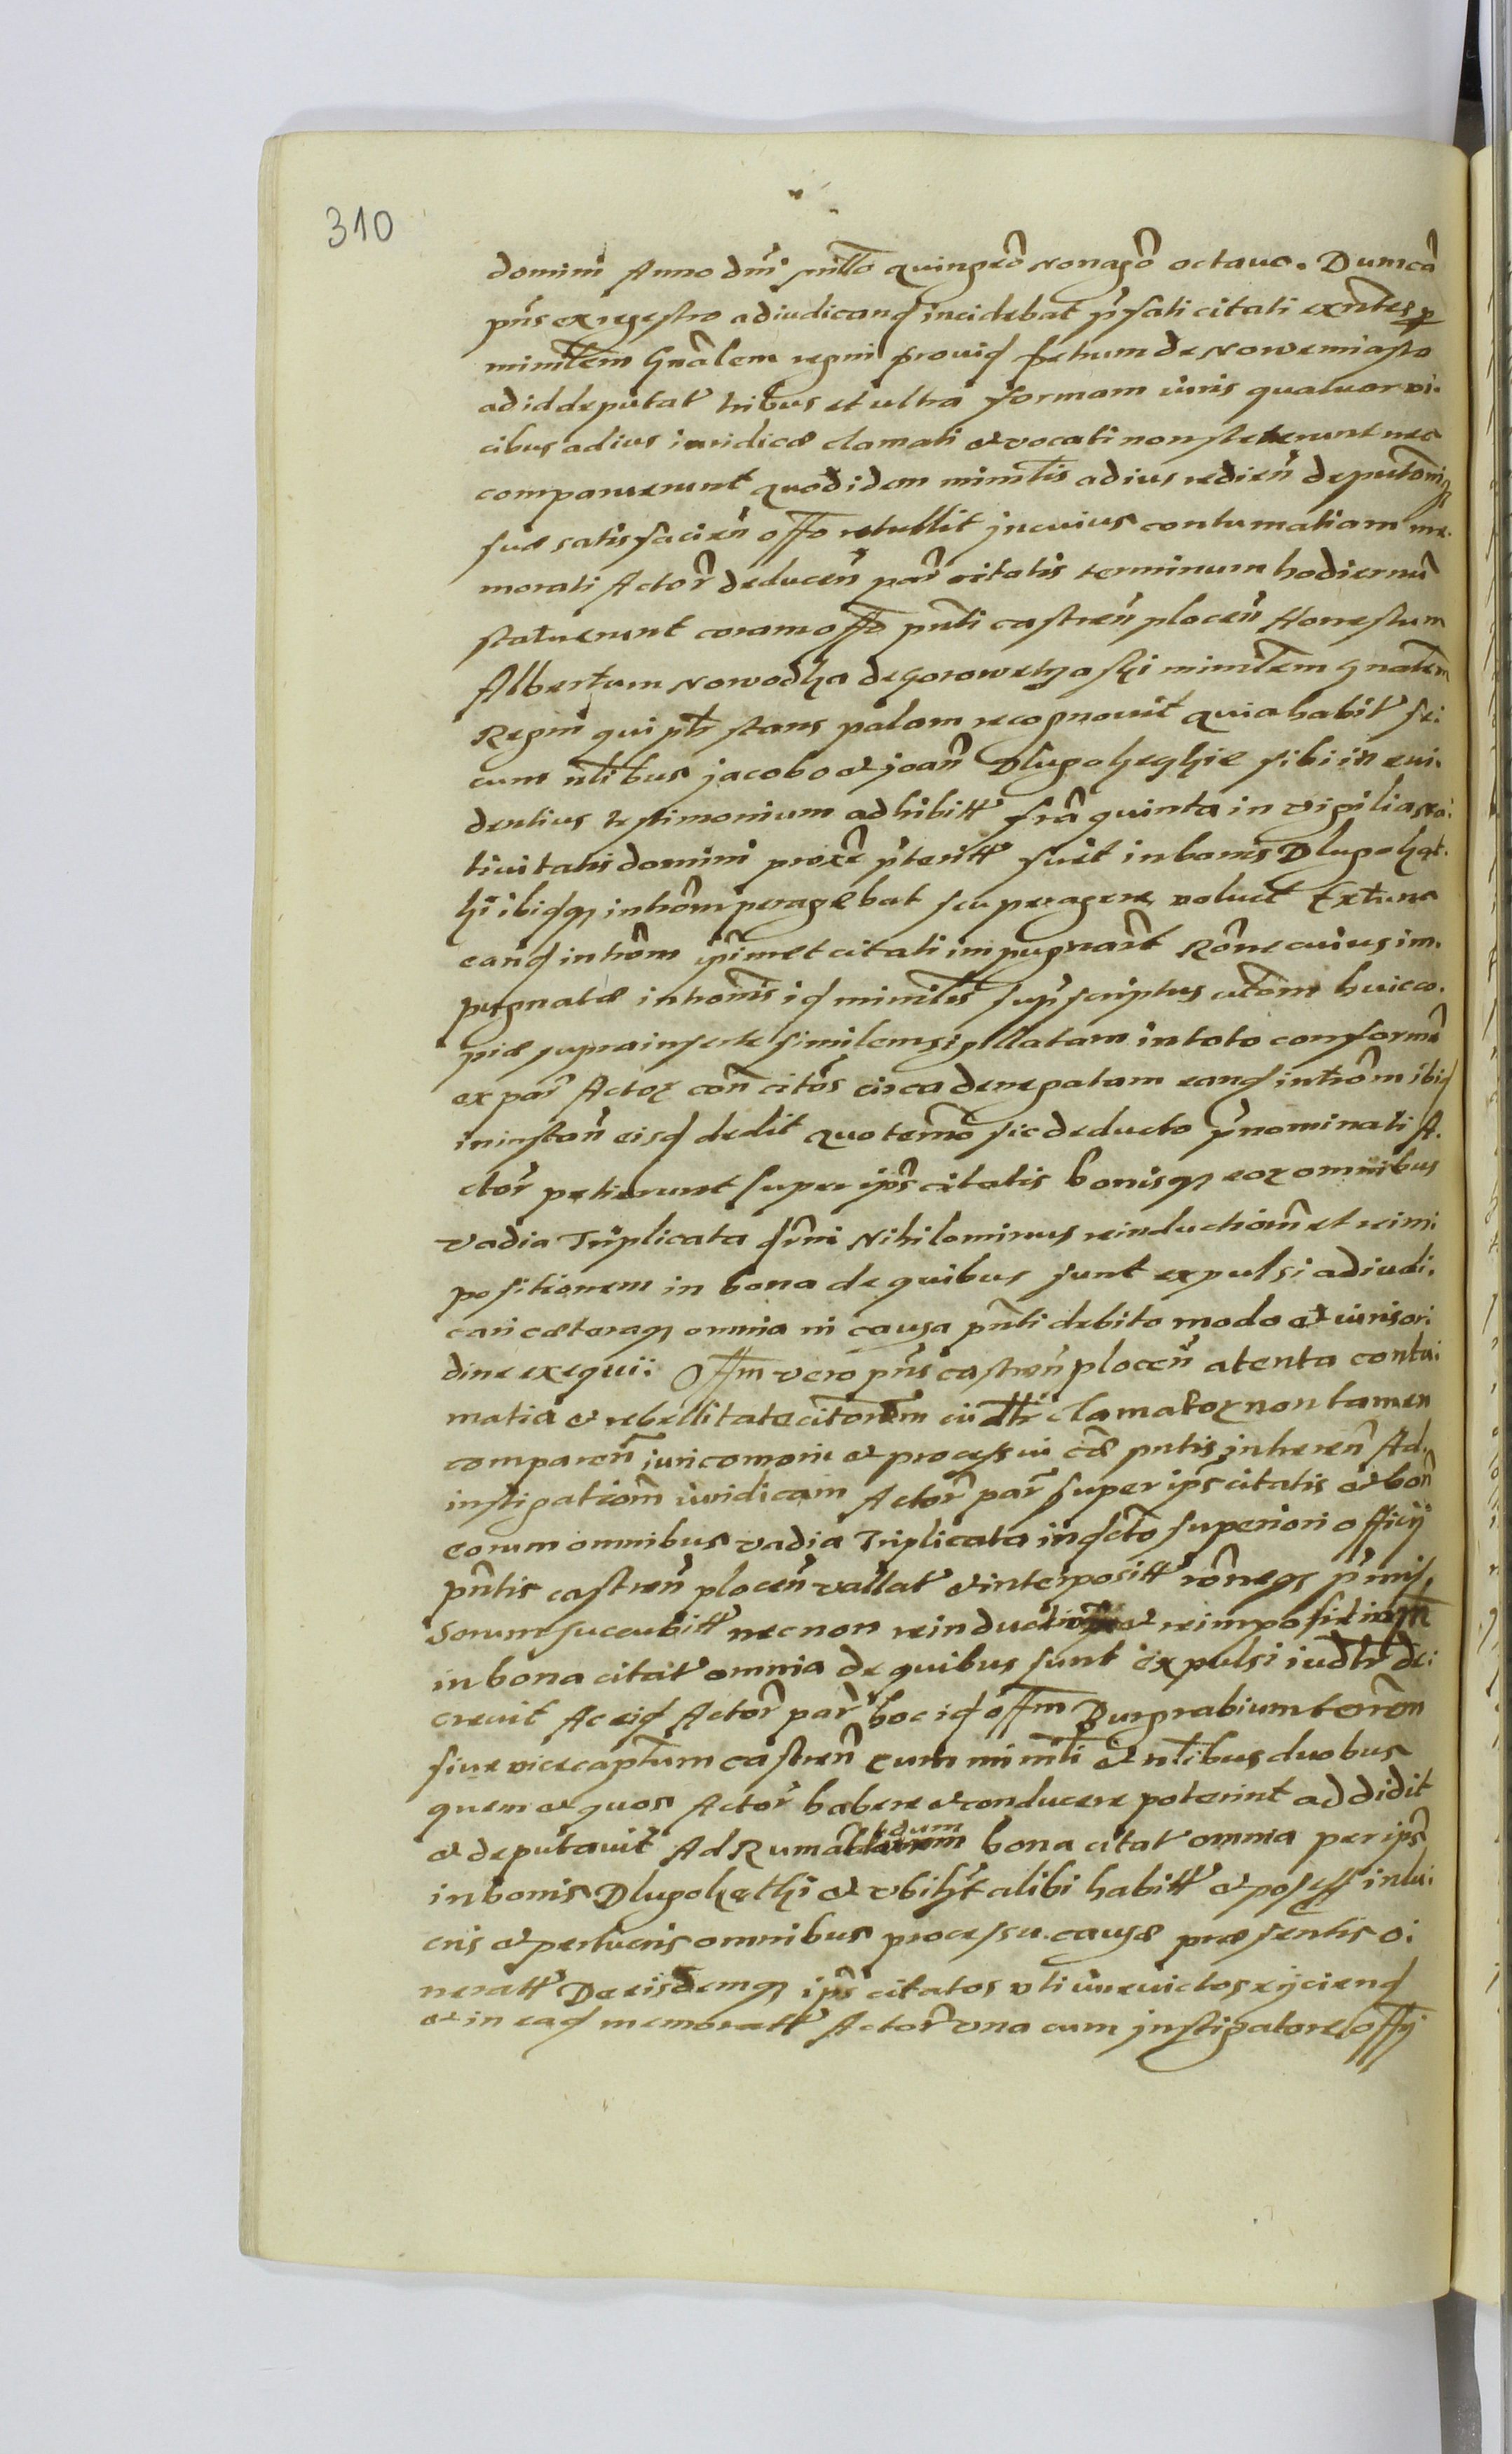 310
domini Anno dni millo quingeo Nonagō octavo. Dum cā
pns ex regestro adiudicand incidebat pfati citati exntes p
minrlem Gnālem regni provid Petrum de Nowemiasto
ad id deputat tribus et ultra formam iuris quatuor vi.
cibus ad ius iuridicæ clamati & vocati non steterunt nec
comparuerunt quod idem minrlis ad ius redien deputoniq
suæ satisfacien offo retullit in cuius contumatiam me.
morati Actor deducen par citatis terminum hodiernū
statuerunt coram offo pnti castren plocen Honestum
Albertum Nowodka de Gorowe minrlem gnalem
Regni qui pt stans palam recognouit quia habit se:
cum nlibus Jacobo & Joan sibi in eui.
dentius testimonium adhibitt fra quinta in vigilia na:
tivitatis domini proxe pteritt fuit in bonis
ibiqq introm peragebat seu peragere voluit Ex tunc
eand introm ipimet citati impugnart Rone cuius im.
pugnatæ intronis id minrles supscriptus citom huic co.
piæ suprainserte similem sigillatam in toto conformē
ex par Actor con citos circa denegatam eand introm ibid
in instan eisd dedit quo termo sic deducto pnominati A.
ctor petierunt super ips citatis bonisq eor omnibus
vadia Triplicata Nihilominus reinductiom et reim:
positionem in bona de quibus sunt expulsi adiudi.
cari cæteraq omnia in causa pnti debito modo & iuris or:
dine exequi: Offm vero pns castren plocen atenta contu:
matia & rebellitate citorum clamator non tamen
comparen iuri comoni & processui cæ pntis inheren Ad
instigatiom iuridicam Actor par super ips citatis & bon
eorum omnibus vadia Triplicata in dcto superiori officij
pntis castren plocen vallat & interpositt roneq pmis,
sorum succubitt necnon reinductiom & reimpositiom
in bona citat omnia de quibus sunt expulsi iudtr de:
crevit Ac eid Actor par hoc id offm Burgrabium terrem
sive vicecaptum castren cum minrli & nlibus duobus
quem & quos Actor habere & conducere poterint addidit
& deputavit Ad Rumandum bona citat omnia per ips
in bonis & ubiht alibi habitt & possess in lu:
cris & perlucris omnibus processu causæ præsentis o:
neratt De eisdemq ips citatos uti iurevictos eijciend
& in ead memoratt Actor una cum instigatore offij